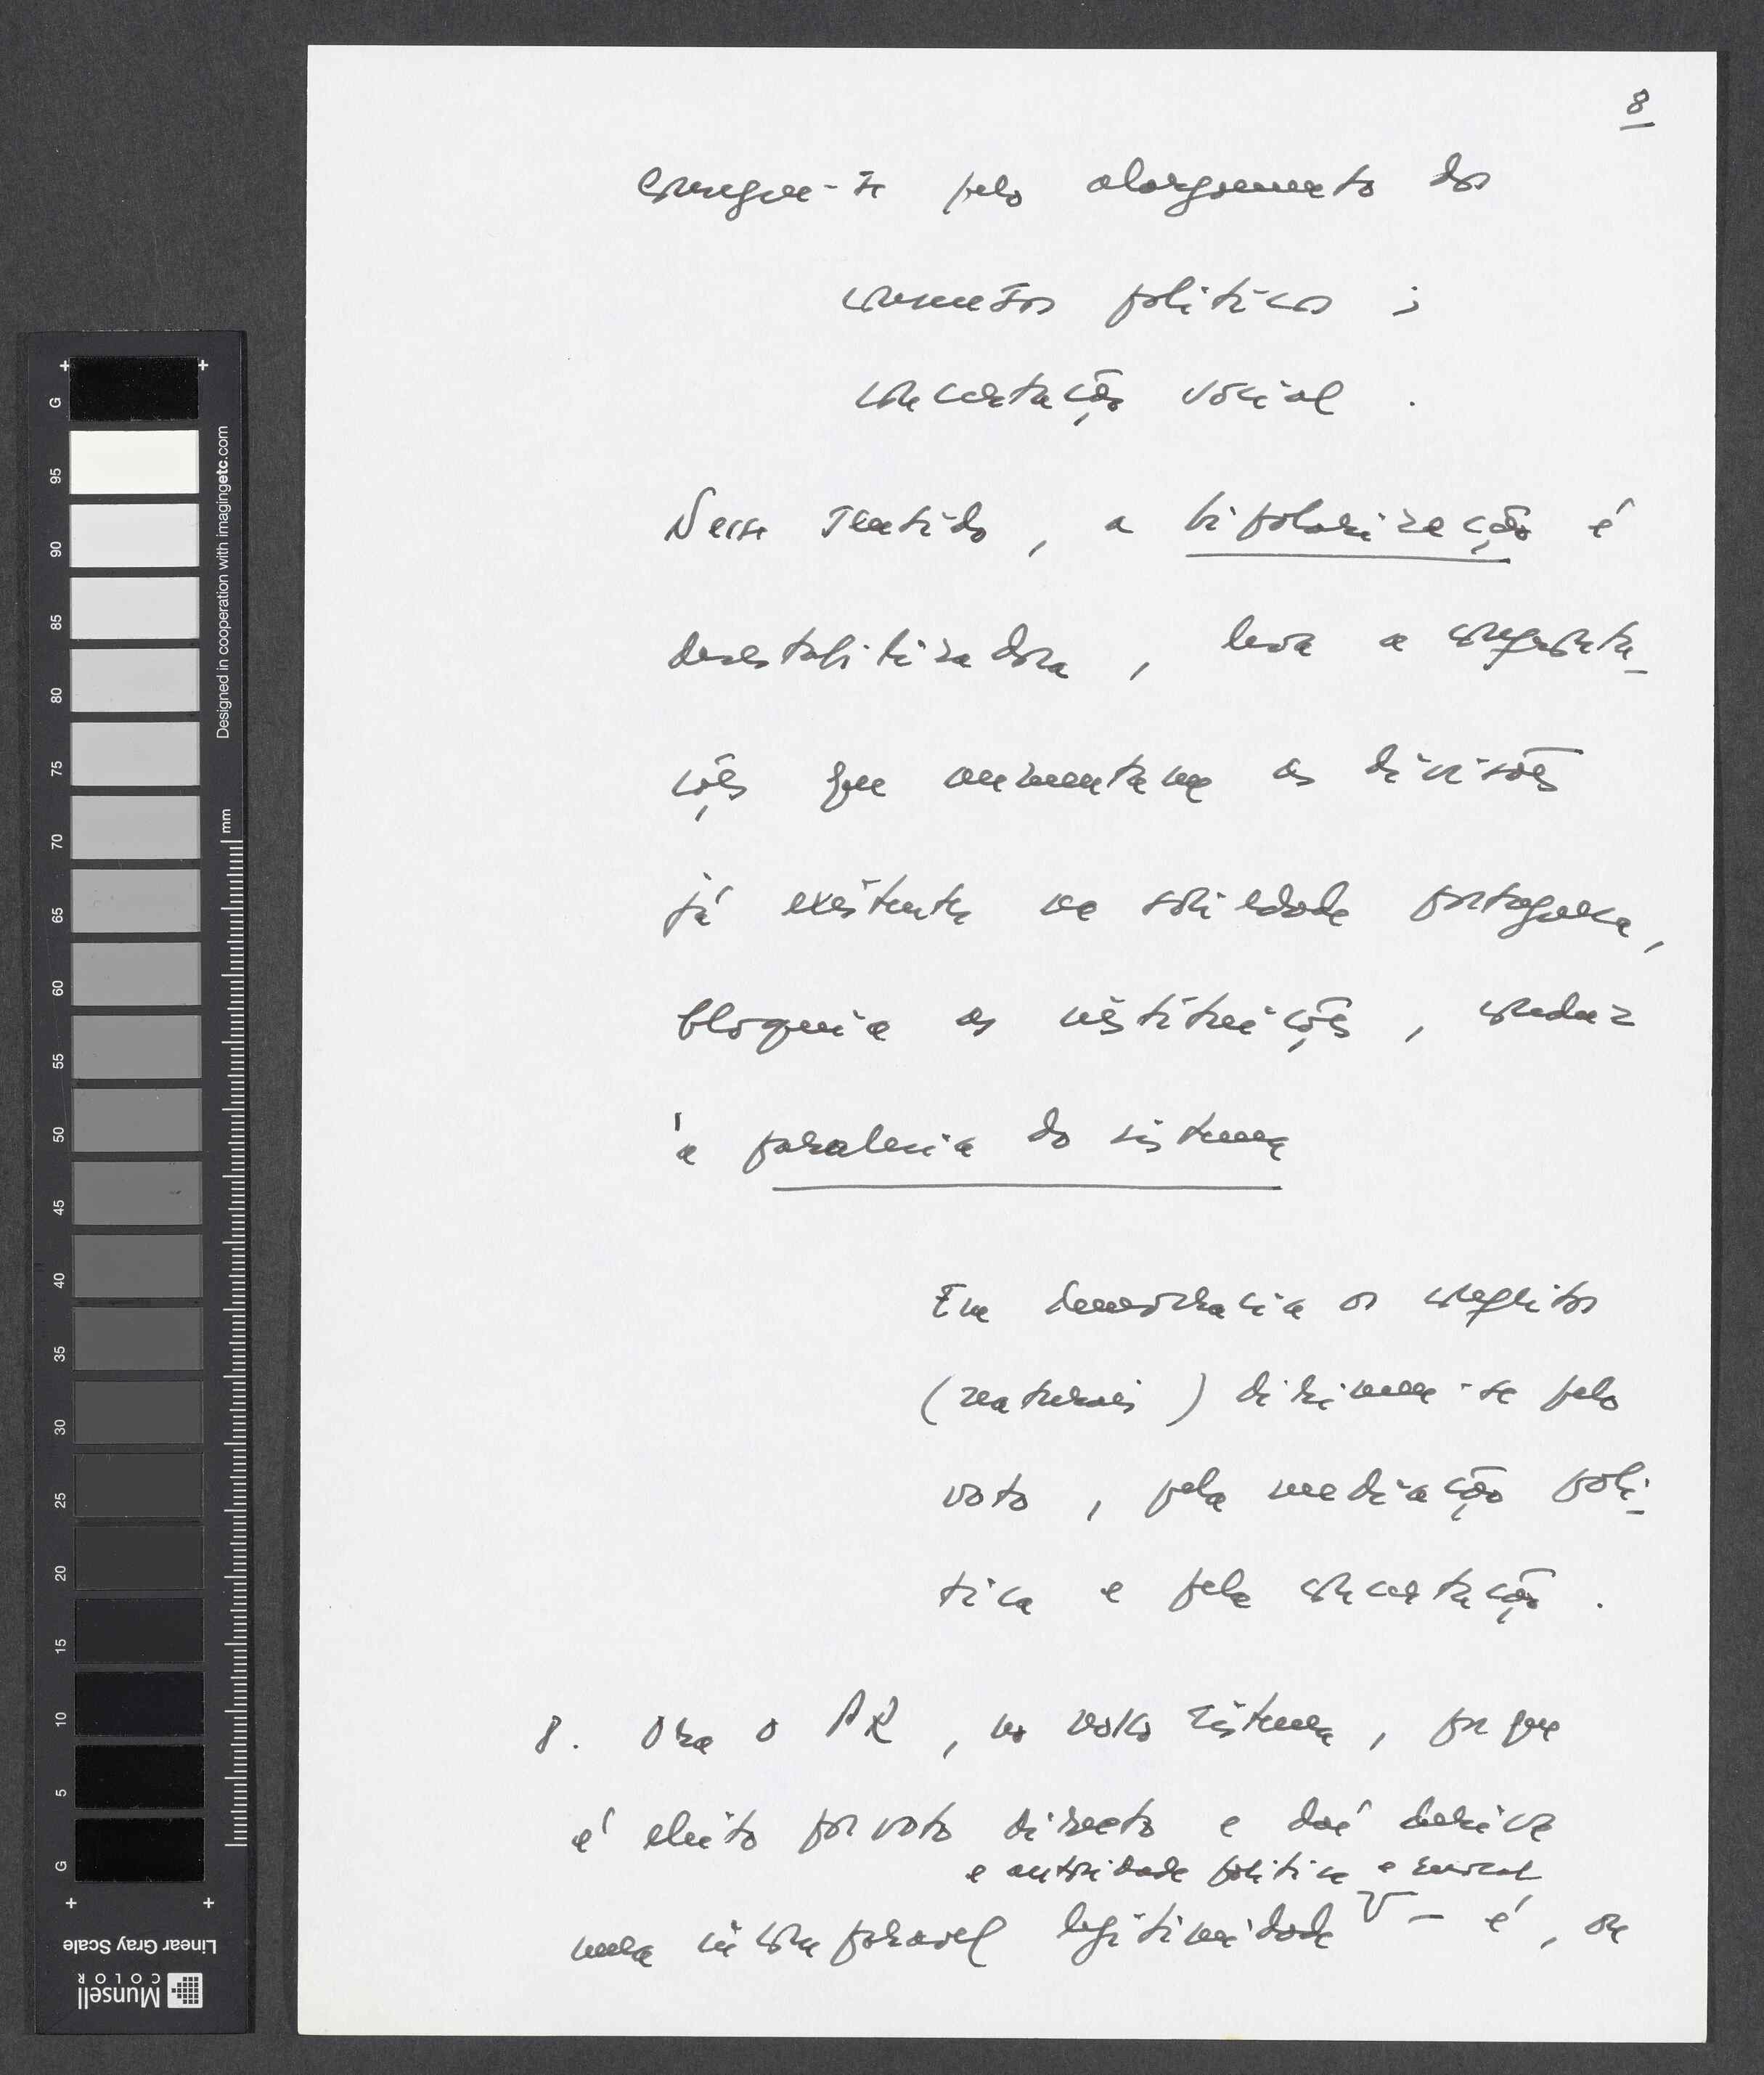 8
Consegue-se pelo alargamento dos
consensos políticos ;
concertação social .
Nesse sentido, a bipolarização é
desestabilizadora, leva a confronta-
ções que aumentam as divisões
já existentes na sociedade portuguesa,
bloqueia as instituições, conduz
à paralesia do sistema
Em democracia os conflitos
(naturais) dirimem-se pelo
voto, pela mediação polí-
tica e pela concertação .
8. Ora o PR, no nosso sistema, porque
é eleito por voto directo e daí deriva
e autoridade política e moral
uma incomparável legitimidade – é, ou
G
95
90
85
80
75
70
65
60
55
50
45
40
35
30
25
20
15
10
5
G
mm
Designed in cooperation with imagingetc.com
Linear Gray Scale
Munsell
COLOR